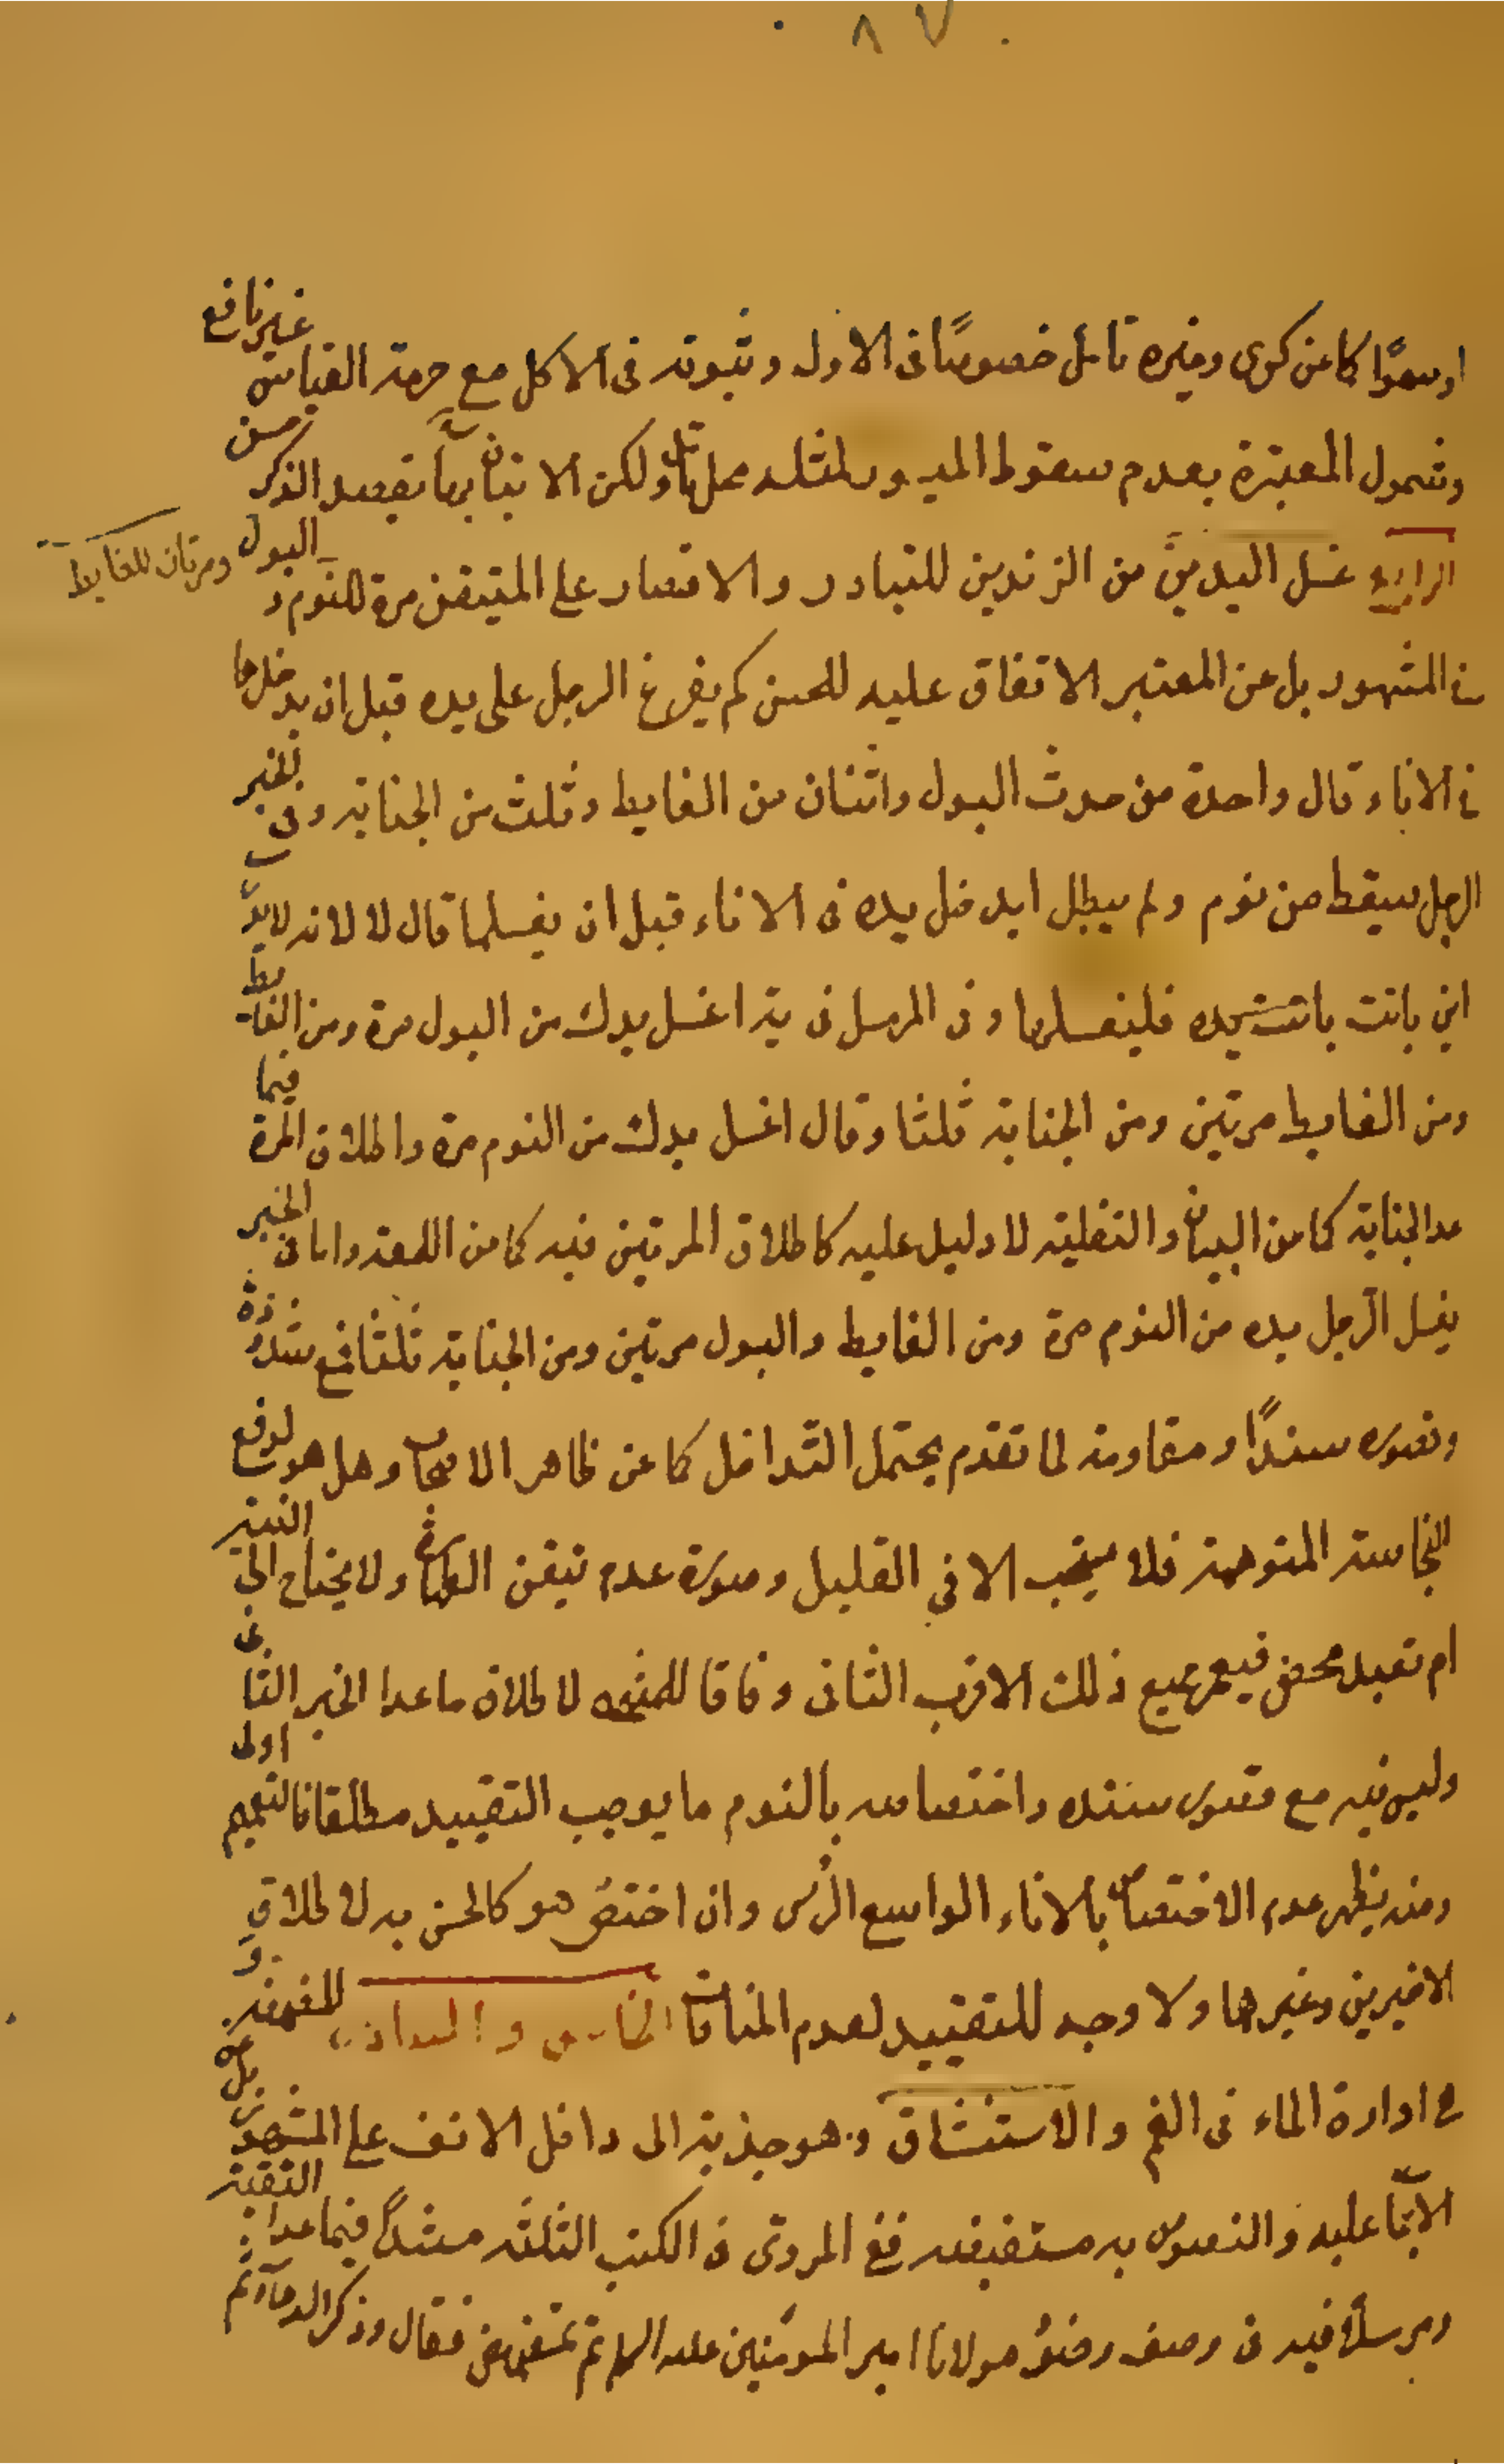 ٨٧
او سهوًا كما عن كرى وغيره تامل خصوصًا فى الاول وثبوته فى الاكل مع حرمة القياس غير نافع
وشمول المعتبرة بعدم سقوط الميسور لمثله محل تامل ولكن الاتيان بها بقصد الذكر حسن
الرابع غسل اليدين من الزندين للتبادر والاقتصار على المتيقن مرة للنوم و البول
ومرتان للغايط
فى المشهور بل عن المعتبر الاتفاق عليه للحسن كم يفرغ الرجل على يده قبل ان يدخلها
فى الاناء قال واحدة من حدث البول واثنتان من الغايط وثلث من الجنابة وفى الخبر
الرجل يستيقظ من نوم ولم يبل ايدخل يده فى الاناء قبل ان يغسلها قال لا لانه لا يدرى
اين باتت يده فليغسلها وفى المرسل فى يه اغسل يدك من البول مرة ومن الغايط
ومن الغايط مرتين ومن الجنابة ثلثا وقال اغسل يدك من النوم مرة واطلاق المرة فيما
عدا الجنابة كما من البيان والنفلية لا دليل عليه كاطلاق المرتين فيه كما من اللمعة واما فى الخبر
يغسل الرجل يده من النوم مرة ومن الغايط والبول مرتين ومن الجنابة ثلثا فمع شذوذه
وقصوره سندًا ومقاومة لما تقدم يحتمل التداخل كما عن ظاهر الاصحاب وهل هو لدفع
النجاسة المتوهمة فلا يستحب الا فى القليل وصورة عدم تيقن الطهارة ولا يحتاج الى النية
ام تعبد محض فيعم جميع ذلك الاقرب الثانى وفاقا للمنتهى لاطلاق ماعدا الخبر الثانى
وليس فيه مع قصور سنده واختصاصه بالنوم ما يوجب التقييد مطلقا فالتعميم اولى
ومنه يظهر عدم الاختصاص بالاناء الواسع الرأس وان اختص هو كالحسن به لاطلاق
الاخيرين وغيرها ولا وجه للتقييد لعدم المنافات الخامس و السادس المضمضة و
هى ادارة الماء فى الفم والاستنشاق وهو جذبه الى داخل الانف على المشهور بل عن
الاجماع عليه والنصوص به مستفيضة ففى المروى فى الكتب الثلثة مسندًا فيما عدا التقية
ومرسلًا فيه فى وصف وضوء مولانا امير المؤمنين عليه السلام ثم تمضمض فقال وذكر الدعاء ثم